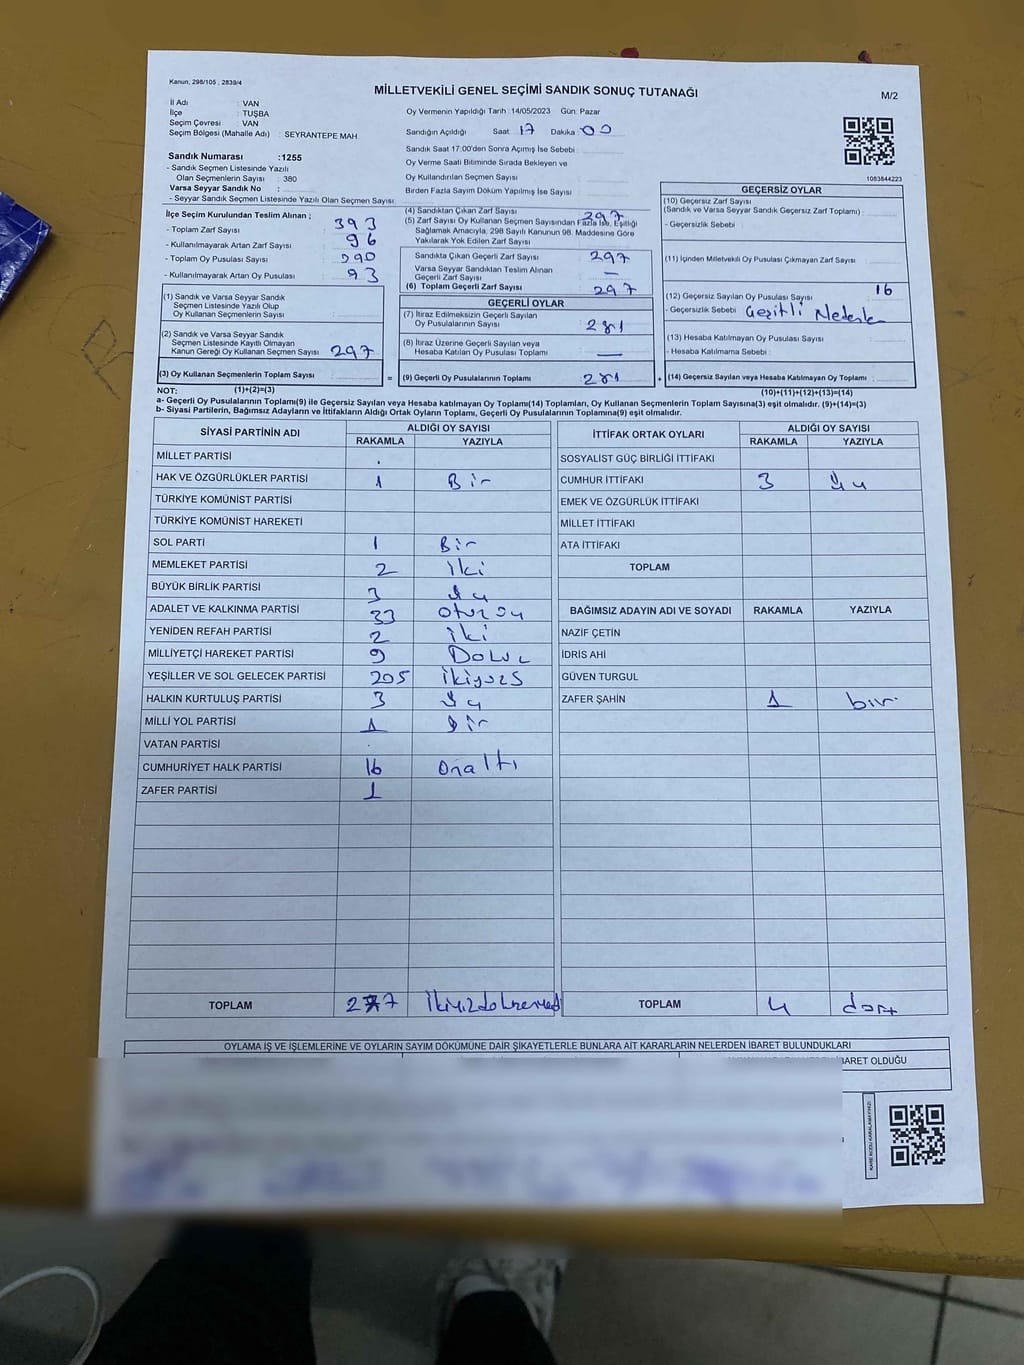 Kanun, 298/105 , 2839/4
MİLLETVEKİLİ GENEL SEÇİMİ SANDIK SONUÇ TUTANAĞI
M/2
İl Adı : VAN
İlçe : TUŞBA
Seçim Çevresi : VAN
Seçim Bölgesi (Mahalle Adı) : SEYRANTEPE MAH.
Oy Vermenin Yapıldığı Tarih : 14/05/2023 Gün: Pazar
Sandığın Açıldığı Saat 17 Dakika 00
Sandık Saat 17:00'den Sonra Açımış İse Sebebi :
Oy Verme Saati Bitiminde Sırada Bekleyen ve
Oy Kullandırılan Seçmen Sayısı :
Birden Fazla Sayım Döküm Yapılmış İse Sayısı :
1083844223
Sandık Numarası : 1255
- Sandık Seçmen Listesinde Yazılı
Olan Seçmenlerin Sayısı : 380
Varsa Seyyar Sandık No :
- Seyyar Sandık Seçmen Listesinde Yazılı Olan Seçmen Sayısı :
İlçe Seçim Kurulundan Teslim Alınan ;
- Toplam Zarf Sayısı : 393
- Kullanılmayarak Artan Zarf Sayısı : 96
- Toplam Oy Pusulası Sayısı : 390
- Kullanılmayarak Artan Oy Pusulası : 93
(1) Sandık ve Varsa Seyyar Sandık
Seçmen Listesinde Yazılı Olup
Oy Kullanan Seçmenlerin Sayısı :
(2) Sandık ve Varsa Seyyar Sandık
Seçmen Listesinde Kayıtlı Olmayan
Kanun Gereği Oy Kullanan Seçmen Sayısı : 297
(3) Oy Kullanan Seçmenlerin Toplam Sayısı :
(1)+(2)=(3)
(4) Sandıktan Çıkan Zarf Sayısı : 297
(5) Zarf Sayısı Oy Kullanan Seçmen Sayısından Fazla İse, Eşitliği
Sağlamak Amacıyla, 298 Sayılı Kanunun 98. Maddesine Göre
Yakılarak Yok Edilen Zarf Sayısı :
Sandıkta Çıkan Geçerli Zarf Sayısı : 297
Varsa Seyyar Sandıktan Teslim Alınan
Geçerli Zarf Sayısı : —
(6) Toplam Geçerli Zarf Sayısı : 297
GEÇERLİ OYLAR
(7) İtiraz Edilmeksizin Geçerli Sayılan
Oy Pusulalarının Sayısı : 281
(8) İtiraz Üzerine Geçerli Sayılan veya
Hesaba Katılan Oy Pusulası Toplamı : —
= (9) Geçerli Oy Pusulalarının Toplamı : 281
GEÇERSİZ OYLAR
(10) Geçersiz Zarf Sayısı
(Sandık ve Varsa Seyyar Sandık Geçersiz Zarf Toplamı) :
- Geçersizlik Sebebi :
(11) İçinden Milletvekili Oy Pusulası Çıkmayan Zarf Sayısı :
(12) Geçersiz Sayılan Oy Pusulası Sayısı : 16
- Geçersizlik Sebebi : Çeşitli
(13) Hesaba Katılmayan Oy Pusulası Sayısı :
- Hesaba Katılmama Sebebi :
+ (14) Geçersiz Sayılan veya Hesaba Katılmayan Oy Toplamı :
(10)+(11)+(12)+(13)=(14)
NOT:
a- Geçerli Oy Pusulalarının Toplamı(9) ile Geçersiz Sayılan veya Hesaba katılmayan Oy Toplamı(14) Toplamları, Oy Kullanan Seçmenlerin Toplam Sayısına(3) eşit olmalıdır. (9)+(14)=(3)
b- Siyasi Partilerin, Bağımsız Adayların ve İttifakların Aldığı Ortak Oyların Toplamı, Geçerli Oy Pusulalarının Toplamına(9) eşit olmalıdır.
SİYASİ PARTİNİN ADI ALDIĞI OY SAYISI
RAKAMLA YAZIYLA
MİLLET PARTİSİ
HAK VE ÖZGÜRLÜKLER PARTİSİ 1 Bir
TÜRKİYE KOMÜNİST PARTİSİ
TÜRKİYE KOMÜNİST HAREKETİ
SOL PARTİ 1 Bir
MEMLEKET PARTİSİ 2 İki
BÜYÜK BİRLİK PARTİSİ 3
ADALET VE KALKINMA PARTİSİ 33
YENİDEN REFAH PARTİSİ 2 İki
MİLLİYETÇİ HAREKET PARTİSİ 9
YEŞİLLER VE SOL GELECEK PARTİSİ 205
HALKIN KURTULUŞ PARTİSİ 3
MİLLİ YOL PARTİSİ 1 Bir
VATAN PARTİSİ
CUMHURİYET HALK PARTİSİ 16 Onaltı
ZAFER PARTİSİ 1
TOPLAM 277
İTTİFAK ORTAK OYLARI ALDIĞI OY SAYISI
RAKAMLA YAZIYLA
SOSYALİST GÜÇ BİRLİĞİ İTTİFAKI
CUMHUR İTTİFAKI 3
EMEK VE ÖZGÜRLÜK İTTİFAKI
MİLLET İTTİFAKI
ATA İTTİFAKI
TOPLAM
BAĞIMSIZ ADAYIN ADI VE SOYADI RAKAMLA YAZIYLA
NAZİF ÇETİN
İDRİS AHİ
GÜVEN TURGUL
ZAFER ŞAHİN 1 bir
TOPLAM 4 dört
OYLAMA İŞ VE İŞLEMLERİNE VE OYLARIN SAYIM DÖKÜMÜNE DAİR ŞİKAYETLERLE BUNLARA AİT KARARLARIN NELERDEN İBARET BULUNDUKLARI
İBARET OLDUĞU
KARE KODU KARALAMAYINIZ!